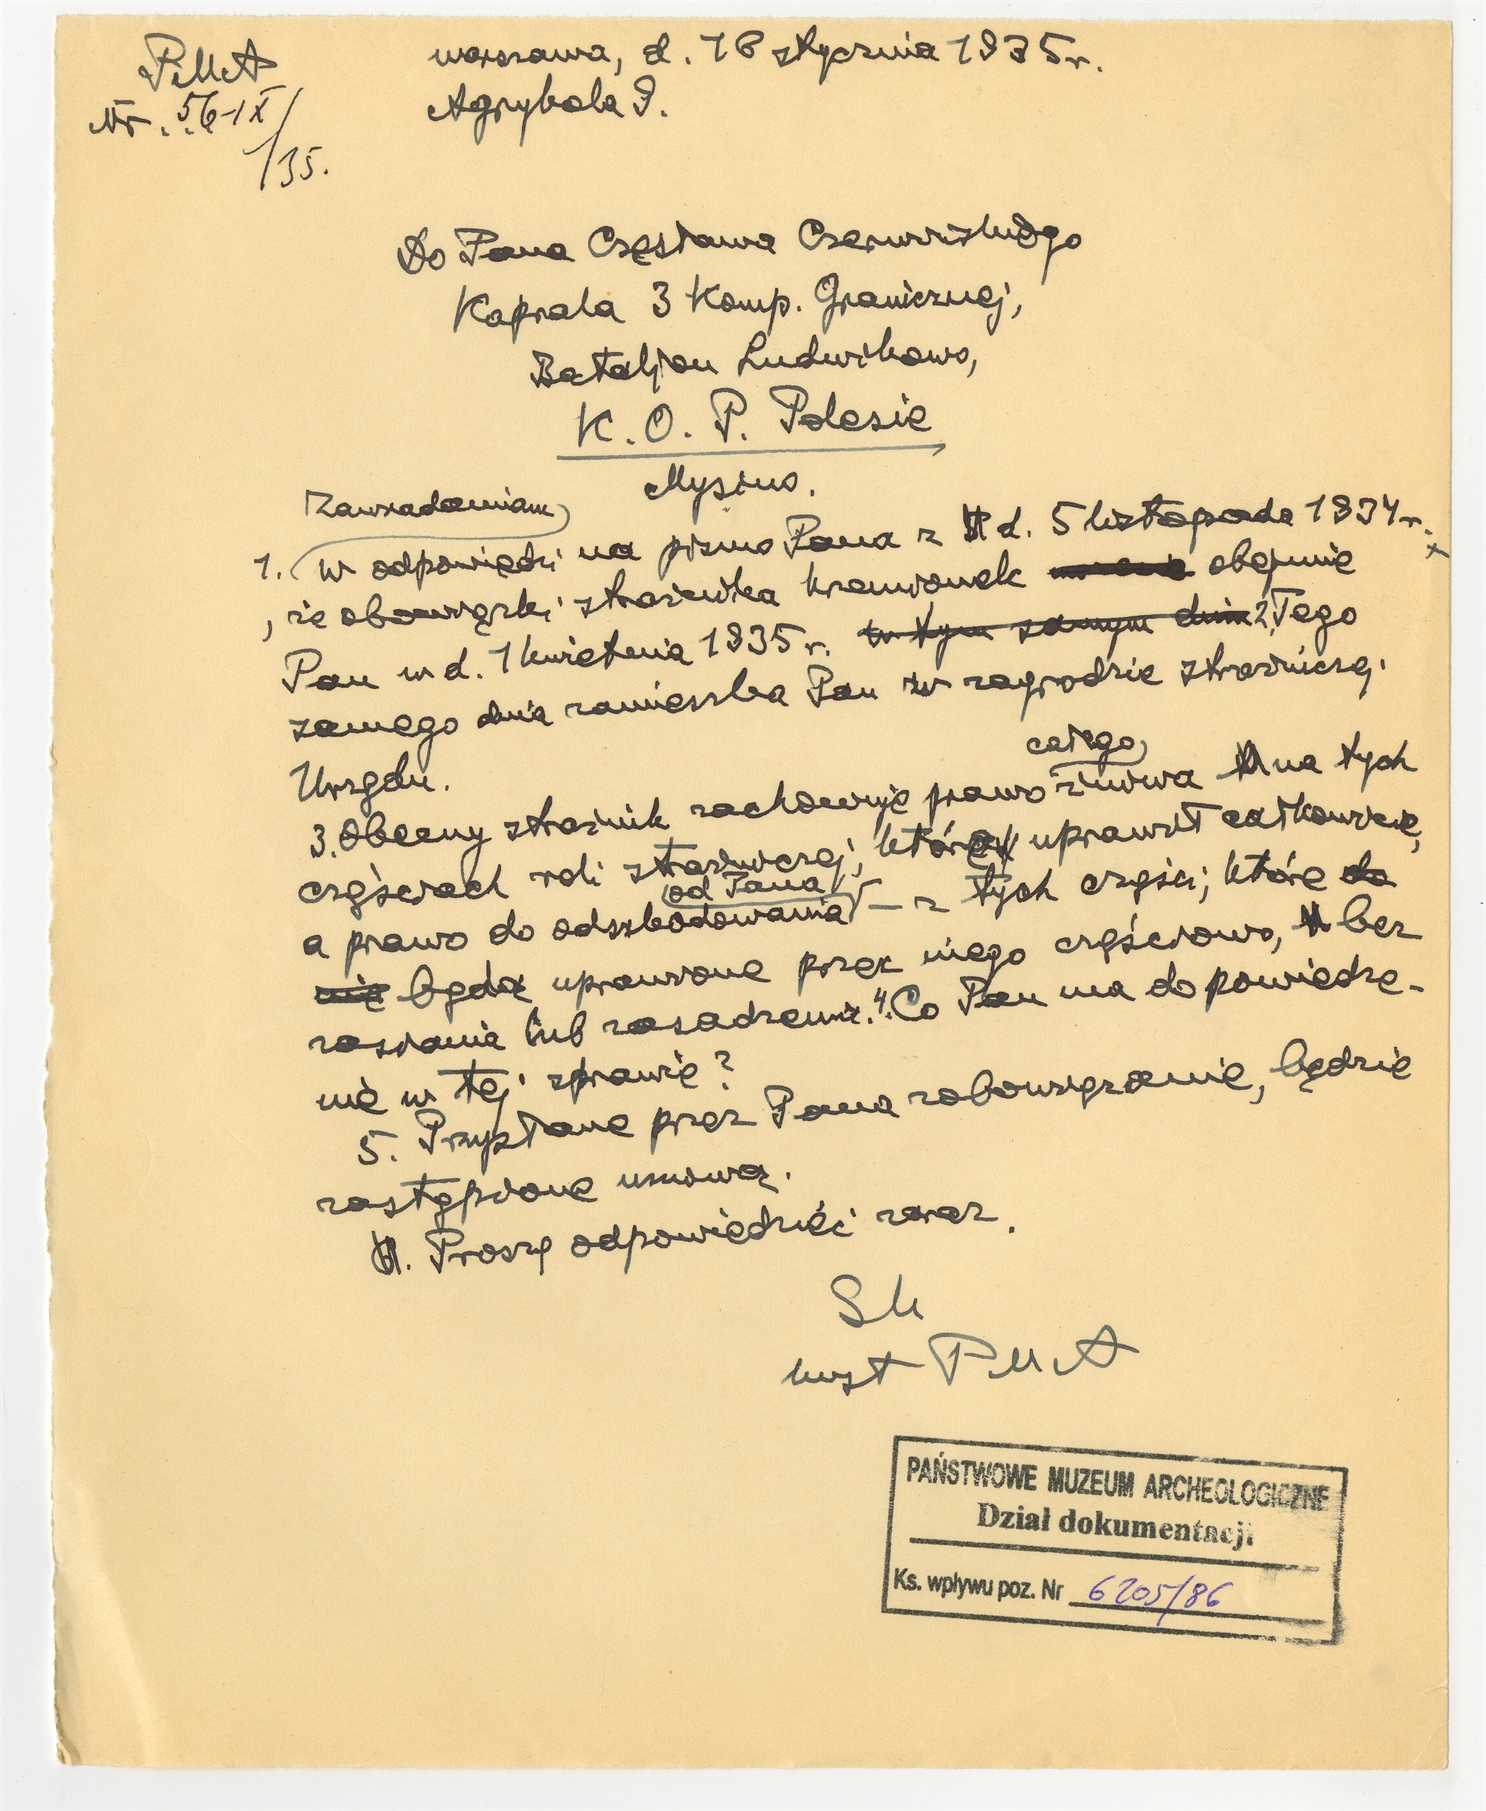 PMA
Nr. 56-IX/35.
Warszawa, d. 16 stycznia 1935 r.
Agrykola 9.
Do Pana Czesława
Kaprala 3 Komp. Granicznej,
Bataljon Ludwikowo,
K. O. P. Polesie
Zawiadamiam
1. W odpowiedzi na pismo Pana z d. 5 listopada 1934 r.
, że obowiązki strażnika krzemionek obejmie
Pan w d. 1 kwietnia 1935 r. w tym samym dniu 2. Tego
samego dnia zamieszka Pan w zagrodzie strażniczej
Urzędu.
całego
3. Obecny strażnik zachowuje prawo żniwa na tych
częściach roli strażniczej, które uprawił całkowicie,
od Pana
a prawo do odszkodowania — z tych części, które do
nie będą uprawione przez niego częściowo, bez
zasiania lub zasadzenia. 4. Co Pan ma do powiedze-
nie w tej sprawie?
5. Przysłane przez Pana zobowiązanie, będzie
zastąpione umową.
6. Proszę odpowiedzieć zaraz.
Sk
kust PMA
PAŃSTWOWE MUZEUM ARCHEOLOGICZNE
Dział dokumentacji
Ks. wpływu poz. Nr 6205/86